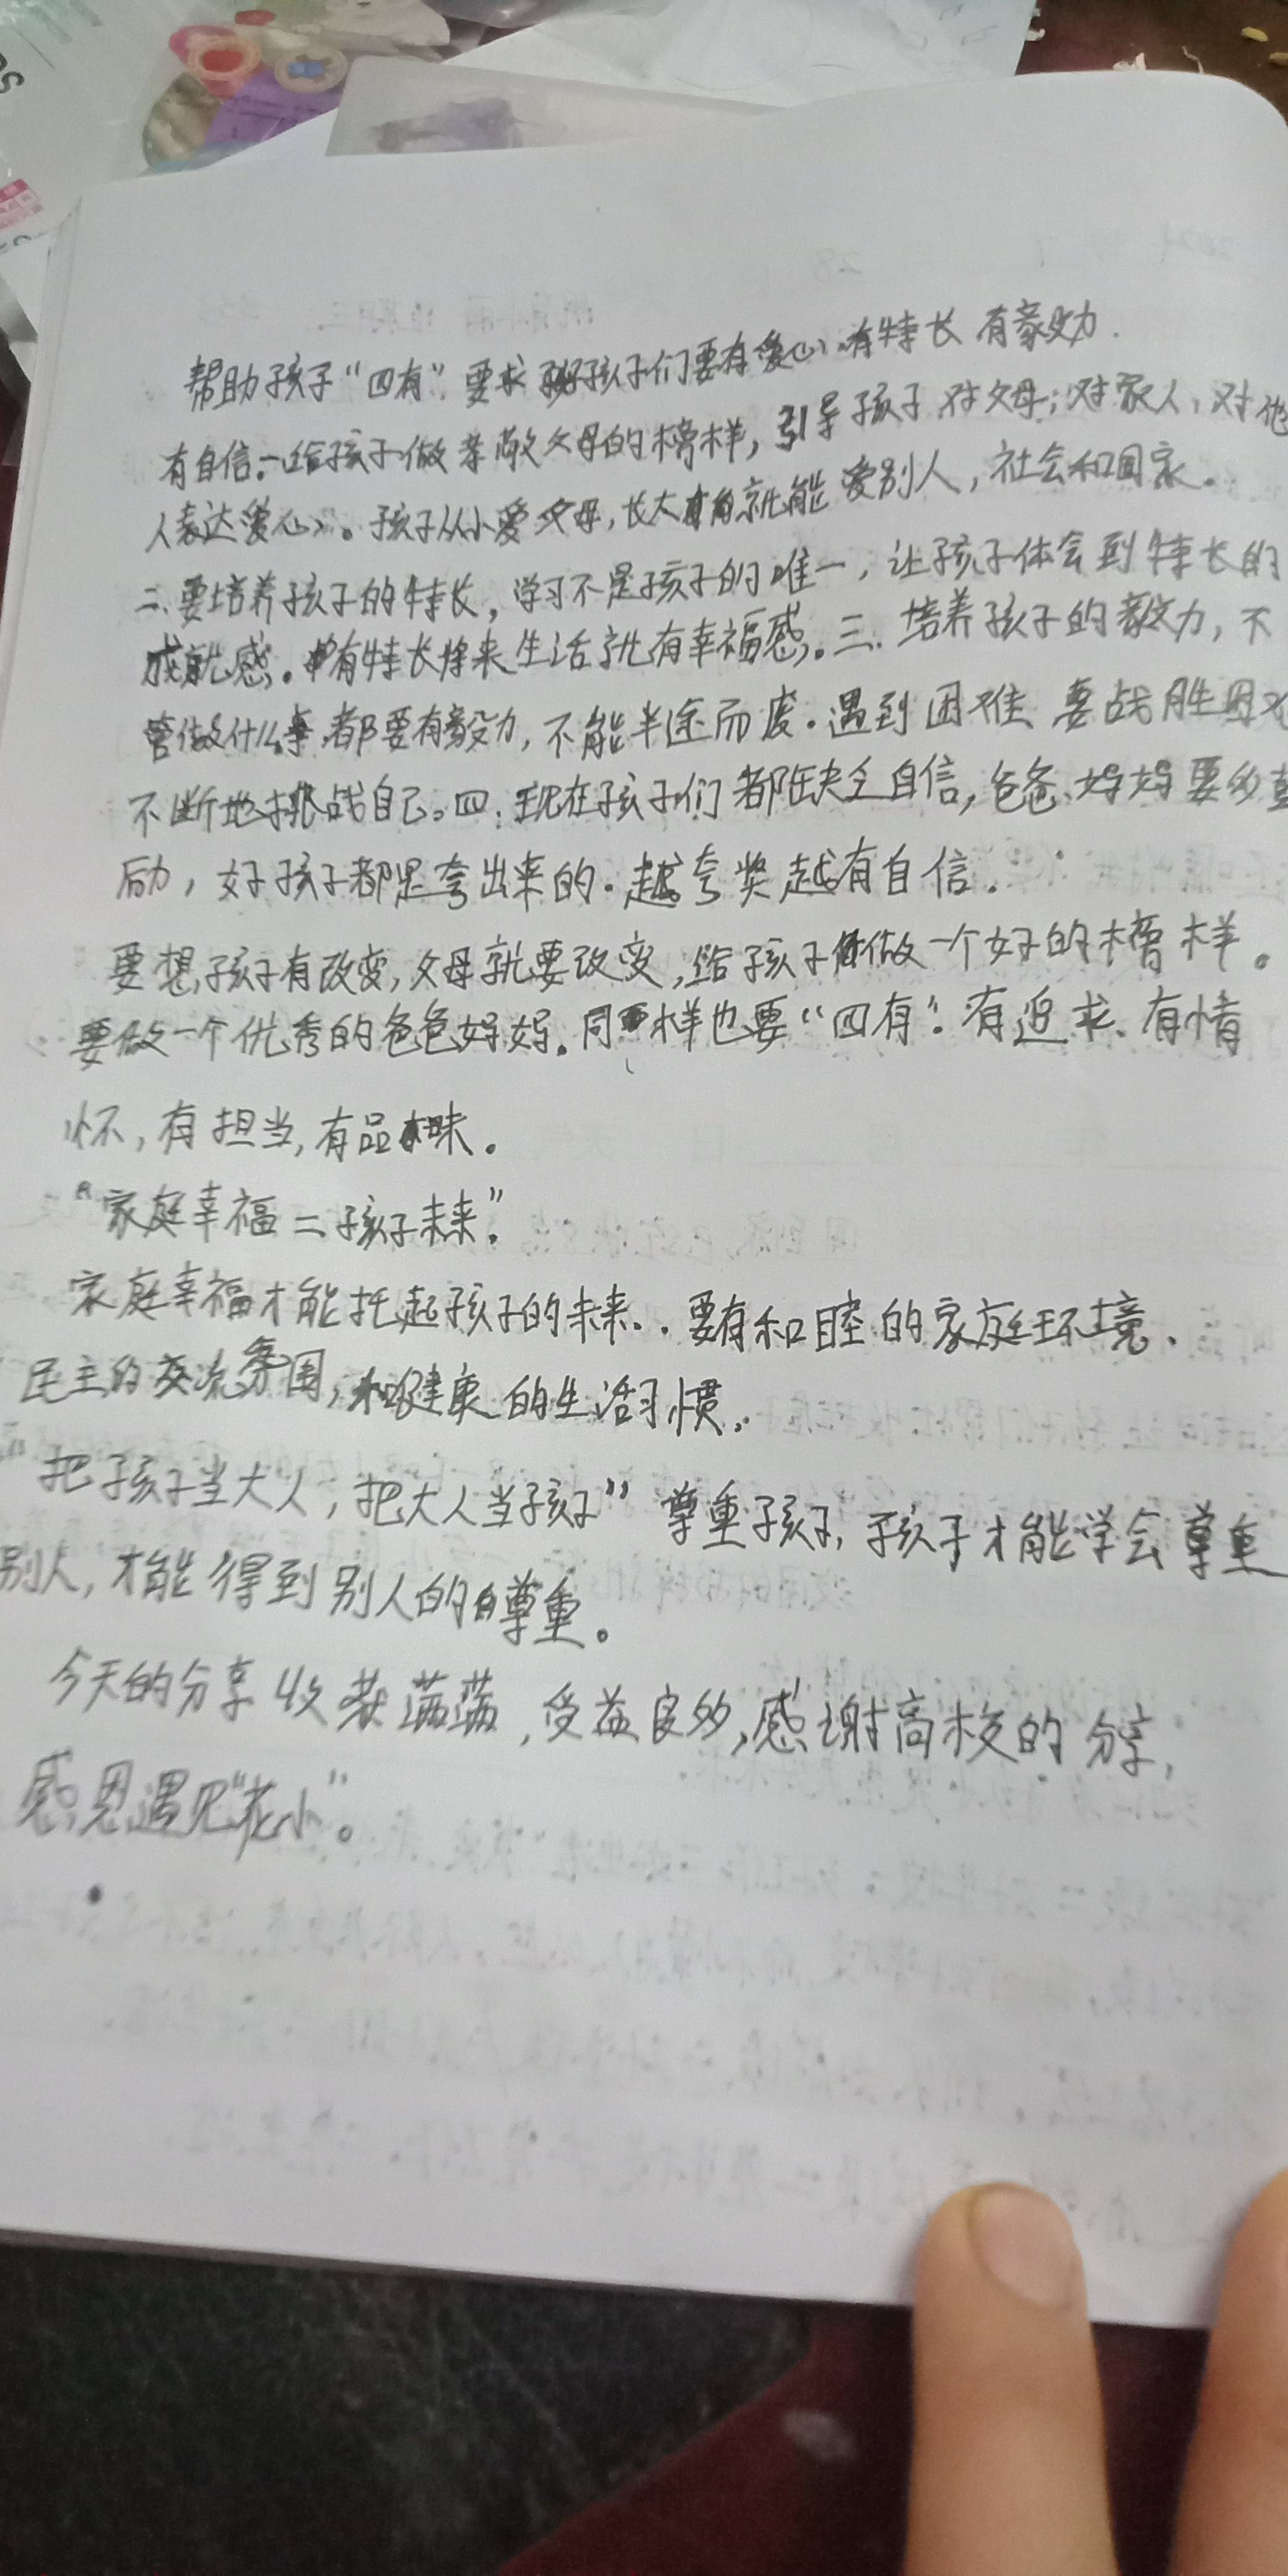 帮助孩子“四有”要求孩子们要有爱心、有特长 有毅力.
有自信。一给孩子做孝敬父母的榜样，引导孩子对父母；对家人，对他
人表达爱心。孩子从小爱父母，长大就能爱别人，社会和国家。
二.要培养孩子的特长，学习不是孩子的唯一，让孩子体会到特长的
成就感。有特长将来生活就有幸福感。三.培养孩子的毅力，不
管做什么事，都要有毅力，不能半途而废.遇到困难 要战胜困难
不断地挑战自己。四：现在孩子们都缺乏自信，爸爸、妈妈要多鼓
励，好孩子都是夸出来的.越夸奖越有自信.
要想孩子有改变，父母就要改变，给孩子做一个好的榜样。
要做一个优秀的爸爸妈妈。同样也要“四有”.有追求、有情
怀，有担当，有品味。
“家庭幸福=孩子未来”。
家庭幸福才能托起孩子的未来..要有和睦的家庭环境、
民主的交流氛围，和健康的生活习惯.
“把孩子当大人，把大人当孩子”尊重孩子，孩子才能学会尊重
别人，才能得到别人的尊重。
今天的分享收获满满，受益良多，感谢高校的分享，
感恩遇见“花小”。